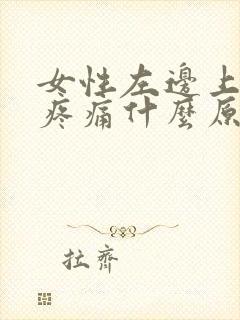 女性左邊上
疼痛什麼原
拉齊